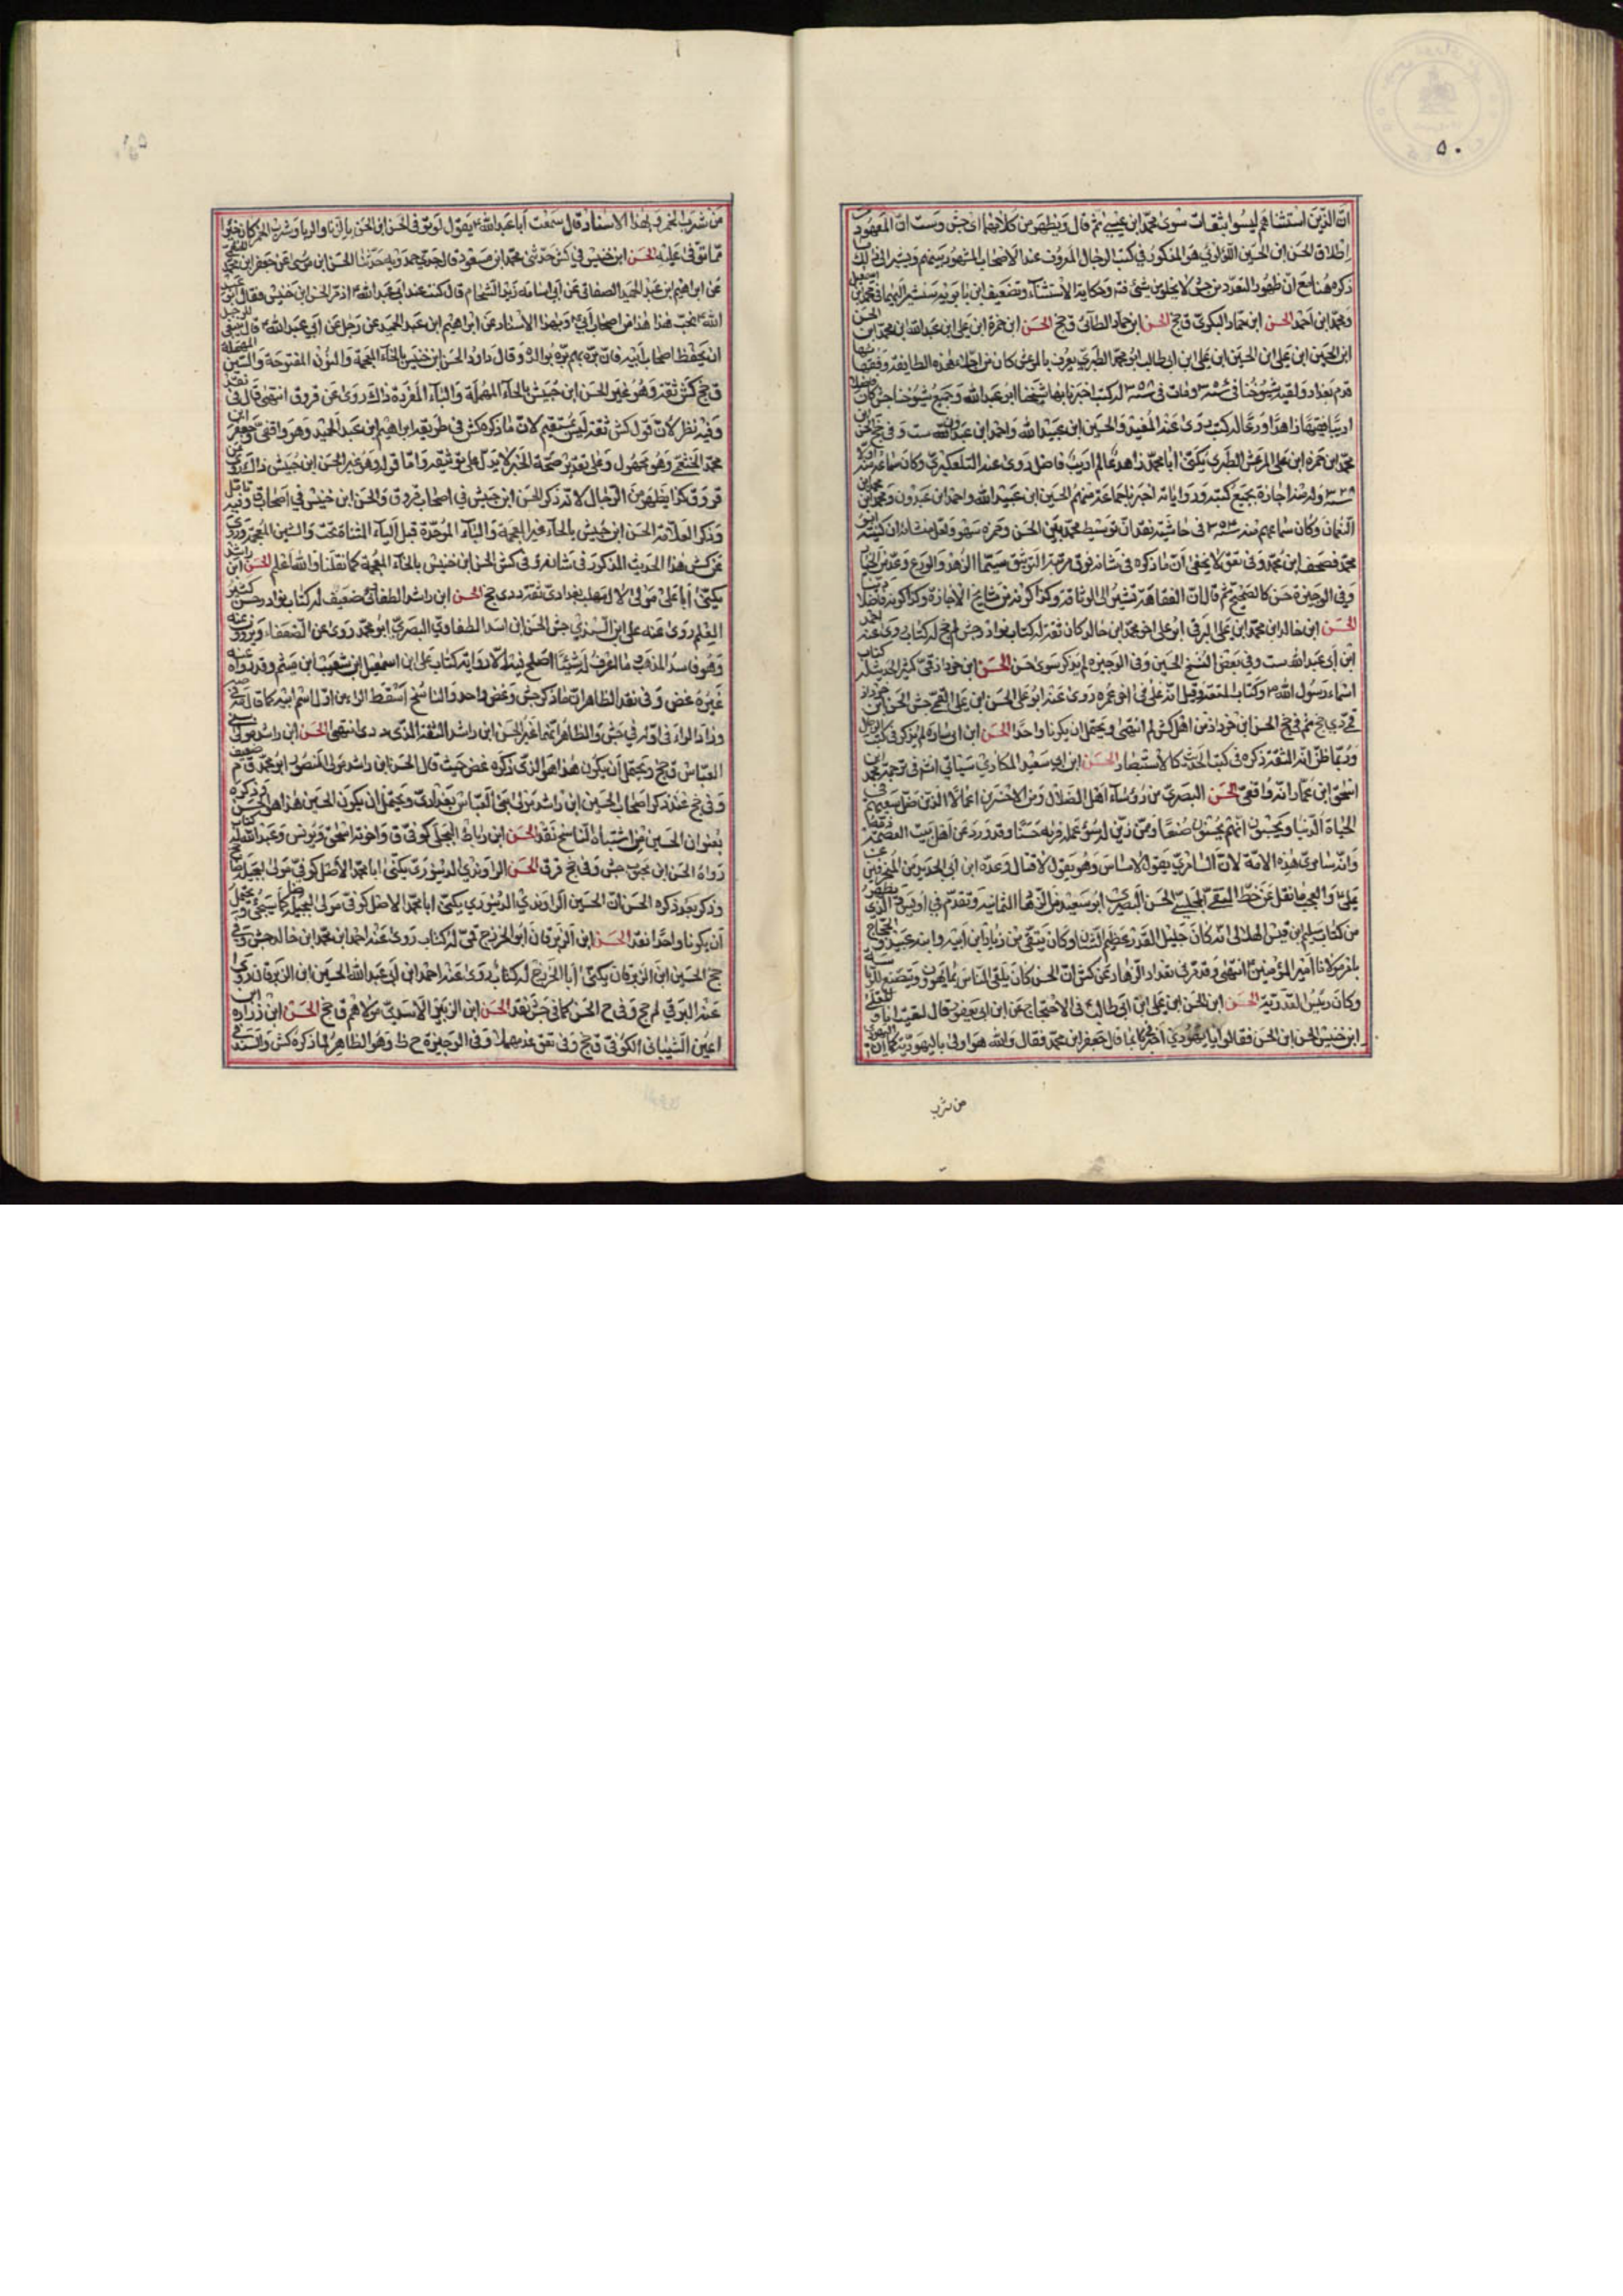 ٥٠
ان الذين استثناهم ليسوا بثقات سوى محمد ابن عيسى ثم قال ويظهر من كلامهما اى جش وست ان المعهود
اطلاق الحسن ابن الحسين اللؤلؤي هو المذكور في كتب الرجال المعروف عند الاصحاب المشهور بينهم
ذكره هنا مع ان ظهور التعدد من جش لا يخلو من شئ وحكاية الاستثناء وتضعيف ابن بابويه
ومحمد ابن احمد الحسن ابن حماد البكري ق جخ الحسن ابن حماد الطائي ق جخ الحسن ابن حمزة ابن علي ابن عبد الله ابن محمد ابن الحسن
ابن الحسين ابن علي ابن الحسين ابن علي ابن ابي طالب ابو محمد الطبري يعرف بالمرعش كان من اجلاء هذه الطايفة وفقهائها
قدم بغداد ولقيه شيوخنا في سنه ٣٥٦ ومات في سنه ٣٥٨ له كتب اخبرنا بها شيخنا ابو عبد الله وجميع شيوخنا جش كان فاضلا
اديبا فقيها زاهدا ورعا له كتب روى عنه المفيد والحسين ابن عبيد الله واحمد ابن عبدون ست وفي جخ الحسن ابن
محمد ابن حمزه ابن علي المرعش الطبري يكنى ابا محمد زاهد عالم اديب فاضل روى عنه التلعكبري وكان سماعه منه اولا
سنه ٣٢٨ وله منه اجازة بجميع كتبه ورواياته اخبرنا جماعة منهم الحسين ابن عبيد الله واحمد ابن عبدون ومحمد ابن
النعمان وكان سماعهم منه سنه ٣٥٤ في حاشية نقد ان توسيط محمد بين الحسن وحمزه سهو ولعل منشائه ان كنيته ابو
محمد فصحف ابن محمد وفي تعق لا يخفى ان ما ذكره في شانه فوق مرتبة التوثيق سيما الزهد والورع
وفي الوجيزة حسن كالصحيح ثم قال ان الفقاهة تشير الى الوثاقة وكذا كونه من مشايخ الاجازة وكذا كونه فاضلا دينا
الحسن ابن خالد ابن محمد ابن علي البرقي ابو علي اخو محمد ابن خالد كان ثقة له كتاب نوادر جش لم جخ له كتاب روى عنه احمد
ابن ابي عبد الله ست وفي بعض النسخ الحسين وفي الوجيزه لم يذكر سوى حسن الحسن ابن خرزاد قمي كثير الحديث له كتاب
اسماء رسول الله ص وكتاب المتعة وقيل انه غلى في اخر عمره روى عنه ابو علي الحسن ابن علي القمي جش الحسن ابن خرزاد
قمي دى جخ ثم في جخ الحسن ابن خرزاد من اهل كش لم انتهى ويحتمل ان يكونا واحدا الحسن ابن ابي ساره لم يذكر في كتب الرجال
وربما ظن انه الثقة ذكره في كتب الحديث كالاستبصار الحسن ابن ابي سعيد المكاري سياتي انشم في ترجمة محمد ابن
اسحق ابن عمار انه واقفي الحسن البصري من رؤساء اهل الضلال ومن الاخسرين اعمالا الذين ضل سعيهم في
الحياة الدنيا ويحسبون انهم يحسنون صنعا وممن زين له سوء عمله فراه حسنا وقد ورد عن اهل بيت العصمة
وانه سامري هذه الامة لان السامري يقول لامساس وهو يقول لا قتال وعده ابن ابي الحديد من المنحرفين عن
علي والعجب ما نقل عن خط التقي المجلسي الحسن البصري ابو سعيد من الزهاد الثمانية وتقدم في اويس ويظهر
من كتاب سليم ابن قيس الهلالي انه كان جليل القدر عظيم الشان وكان يتقي من زياد ابن ابيه وابنه عبيد والحجاج
بامر مولانا امير المؤمنين ع انتهى وقد مر في تعداد الزهاد عن كش ان الحسن كان يلقى الناس بما يهوون ويتصنع للرياسة
وكان رئيس القدرية الحسن ابن الحسن ابن علي ابن ابي طالب في الاحتجاج عن ابن ابي يعفور قال لقيت انا ومعلى
ابن خنيس الحسن ابن الحسن فقال يا يهودي اخبرنا بما قال جعفر ابن محمد فقال والله هو اولى باليهودية
من شرب
من شرب الخمر وبهذا الاسناد قال سمعت ابا عبد الله ع يقول لو توفي الحسن ابن الحسن بالزنا والربا وشرب الخمر كان خيرا
مما توفى عليه الحسن ابن خنيس في كش حدثني محمد ابن مسعود قال حدثني حمدويه حدثنا الحسن ابن موسى عن جعفر ابن محمد
عن ابراهيم ابن عبد الحميد الصنعاني عن ابي اسامه زيد الشحام قال كنت عند ابي عبد الله ع اذ مر الحسن ابن خنيس فقال ابو عبد
الله ع تحب هذا هذا من اصحاب ابي ع وبهذا الاسناد عن ابراهيم ابن عبد الحميد عن رجل عن ابي عبد الله ع قال ينبغي للرجل
ان يحفظ اصحاب ابيه فان بره بهم بره بوالديه وقال داود الحسن ابن خنيس بالخاء المعجمة والنون المفتوحة والسين المهملة
ق جخ كش ثقة وهو غير الحسن ابن حبيش بالحاء المهملة والباء المفردة ذاك روى عن قر وق انتهى قال في نقد
وفيه نظر لان قوله كش ثقة ليس بمستقيم لان ما ذكره كش في طريقه ابراهيم ابن عبد الحميد وهو واقفي وجعفر ابن
محمد الخثعمي وهو مجهول وعلى تقدير صحة الخبر لا يدل على توثيقه واما قوله وهو غير الحسن ابن حبيش ذاك روى عن
قر وق كذا يظهر من الرجال لانه ذكر الحسن ابن حبيش في اصحاب قر وق والحسن ابن خنيس في اصحاب ق وفيه تامل
وذكر العلامة الحسن ابن حبيش بالحاء غير المعجمة والباء الموحدة قبل الياء المثناة تحت والشين المعجمة وروى
عن كش هذا الحديث المذكور في شانه في كش الحسن ابن خنيس بالخاء المعجمة كما نقلنا والله اعلم الحسن ابن راشد
يكنى ابا علي مولى لآل المهلب بغدادي ثقة دى جخ الحسن ابن راشد الطفاوي ضعيف له كتاب نوادر حسن كثير
العلم روى عنه علي ابن السندي جش الحسن ابن اسد الطفاوي البصري ابو محمد روى عن الضعفاء ويروون عنه
وهو فاسد المذهب ما اعرف له شيئا اصلح فيه الا روايته كتاب علي ابن اسمعيل ابن شعيب ابن ميثم وقد رواه عنه
غيره غض وفي نقد الظاهر ان ما ذكره جش وغض واحد والناسخ اسقط الراء من اول اسم ابيه
وزاد الراء في اوله في جش والظاهر انهما غير الحسن ابن راشد الثقة الذي دى انتهى الحسن ابن راشد مولى بني
العباس ق جخ ويحتمل ان يكون هذا هو الذي ذكره غض حيث قال الحسن ابن راشد مولى المنصور ابو محمد ضعيف
وفي جخ عند ذكر اصحاب الحسين ابن راشد مولى بني العباس بغدادي ويحتمل ان يكون الحسين هذا هو الحسن ذكره
بعنوان الحسين من اشتباه الناسخ نقد الحسن ابن رباط البجلي كوفي ق واخوته اسحق ويونس وعبد الله له كتاب
رواه الحسن ابن محبوب جش وفي جخ قر ق الحسن الراوندي الدينوري يكنى ابا محمد الاصل كوفي مولى بجيلة ضا
وذكر بعد ذكره الحسن ان الحسين الراوندي الدينوري يكنى ابا محمد الاصل كوفي مولى لبجيلة كما سيجئ ويحتمل
ان يكونا واحدا نقد الحسن ابن الزبرقان ابو الخزرج قمي له كتاب روى عنه احمد ابن محمد ابن خالد جش وفي
جخ الحسين ابن الزبرقان يكنى ابا الخزرج له كتاب روى عنه احمد ابن ابي عبد الله الحسين ابن الزبرقان روى
عنه البرقي لم جخ وفي ح الحسن كما في جش نقد الحسن ابن الزبير الاسدي مولاهم ق جخ الحسن ابن زراره ابن
اعين الشيباني الكوفي ق جخ وفي تعق عد مهملا وفي الوجيزة ح ظ وهو الظاهر لما ذكره كش